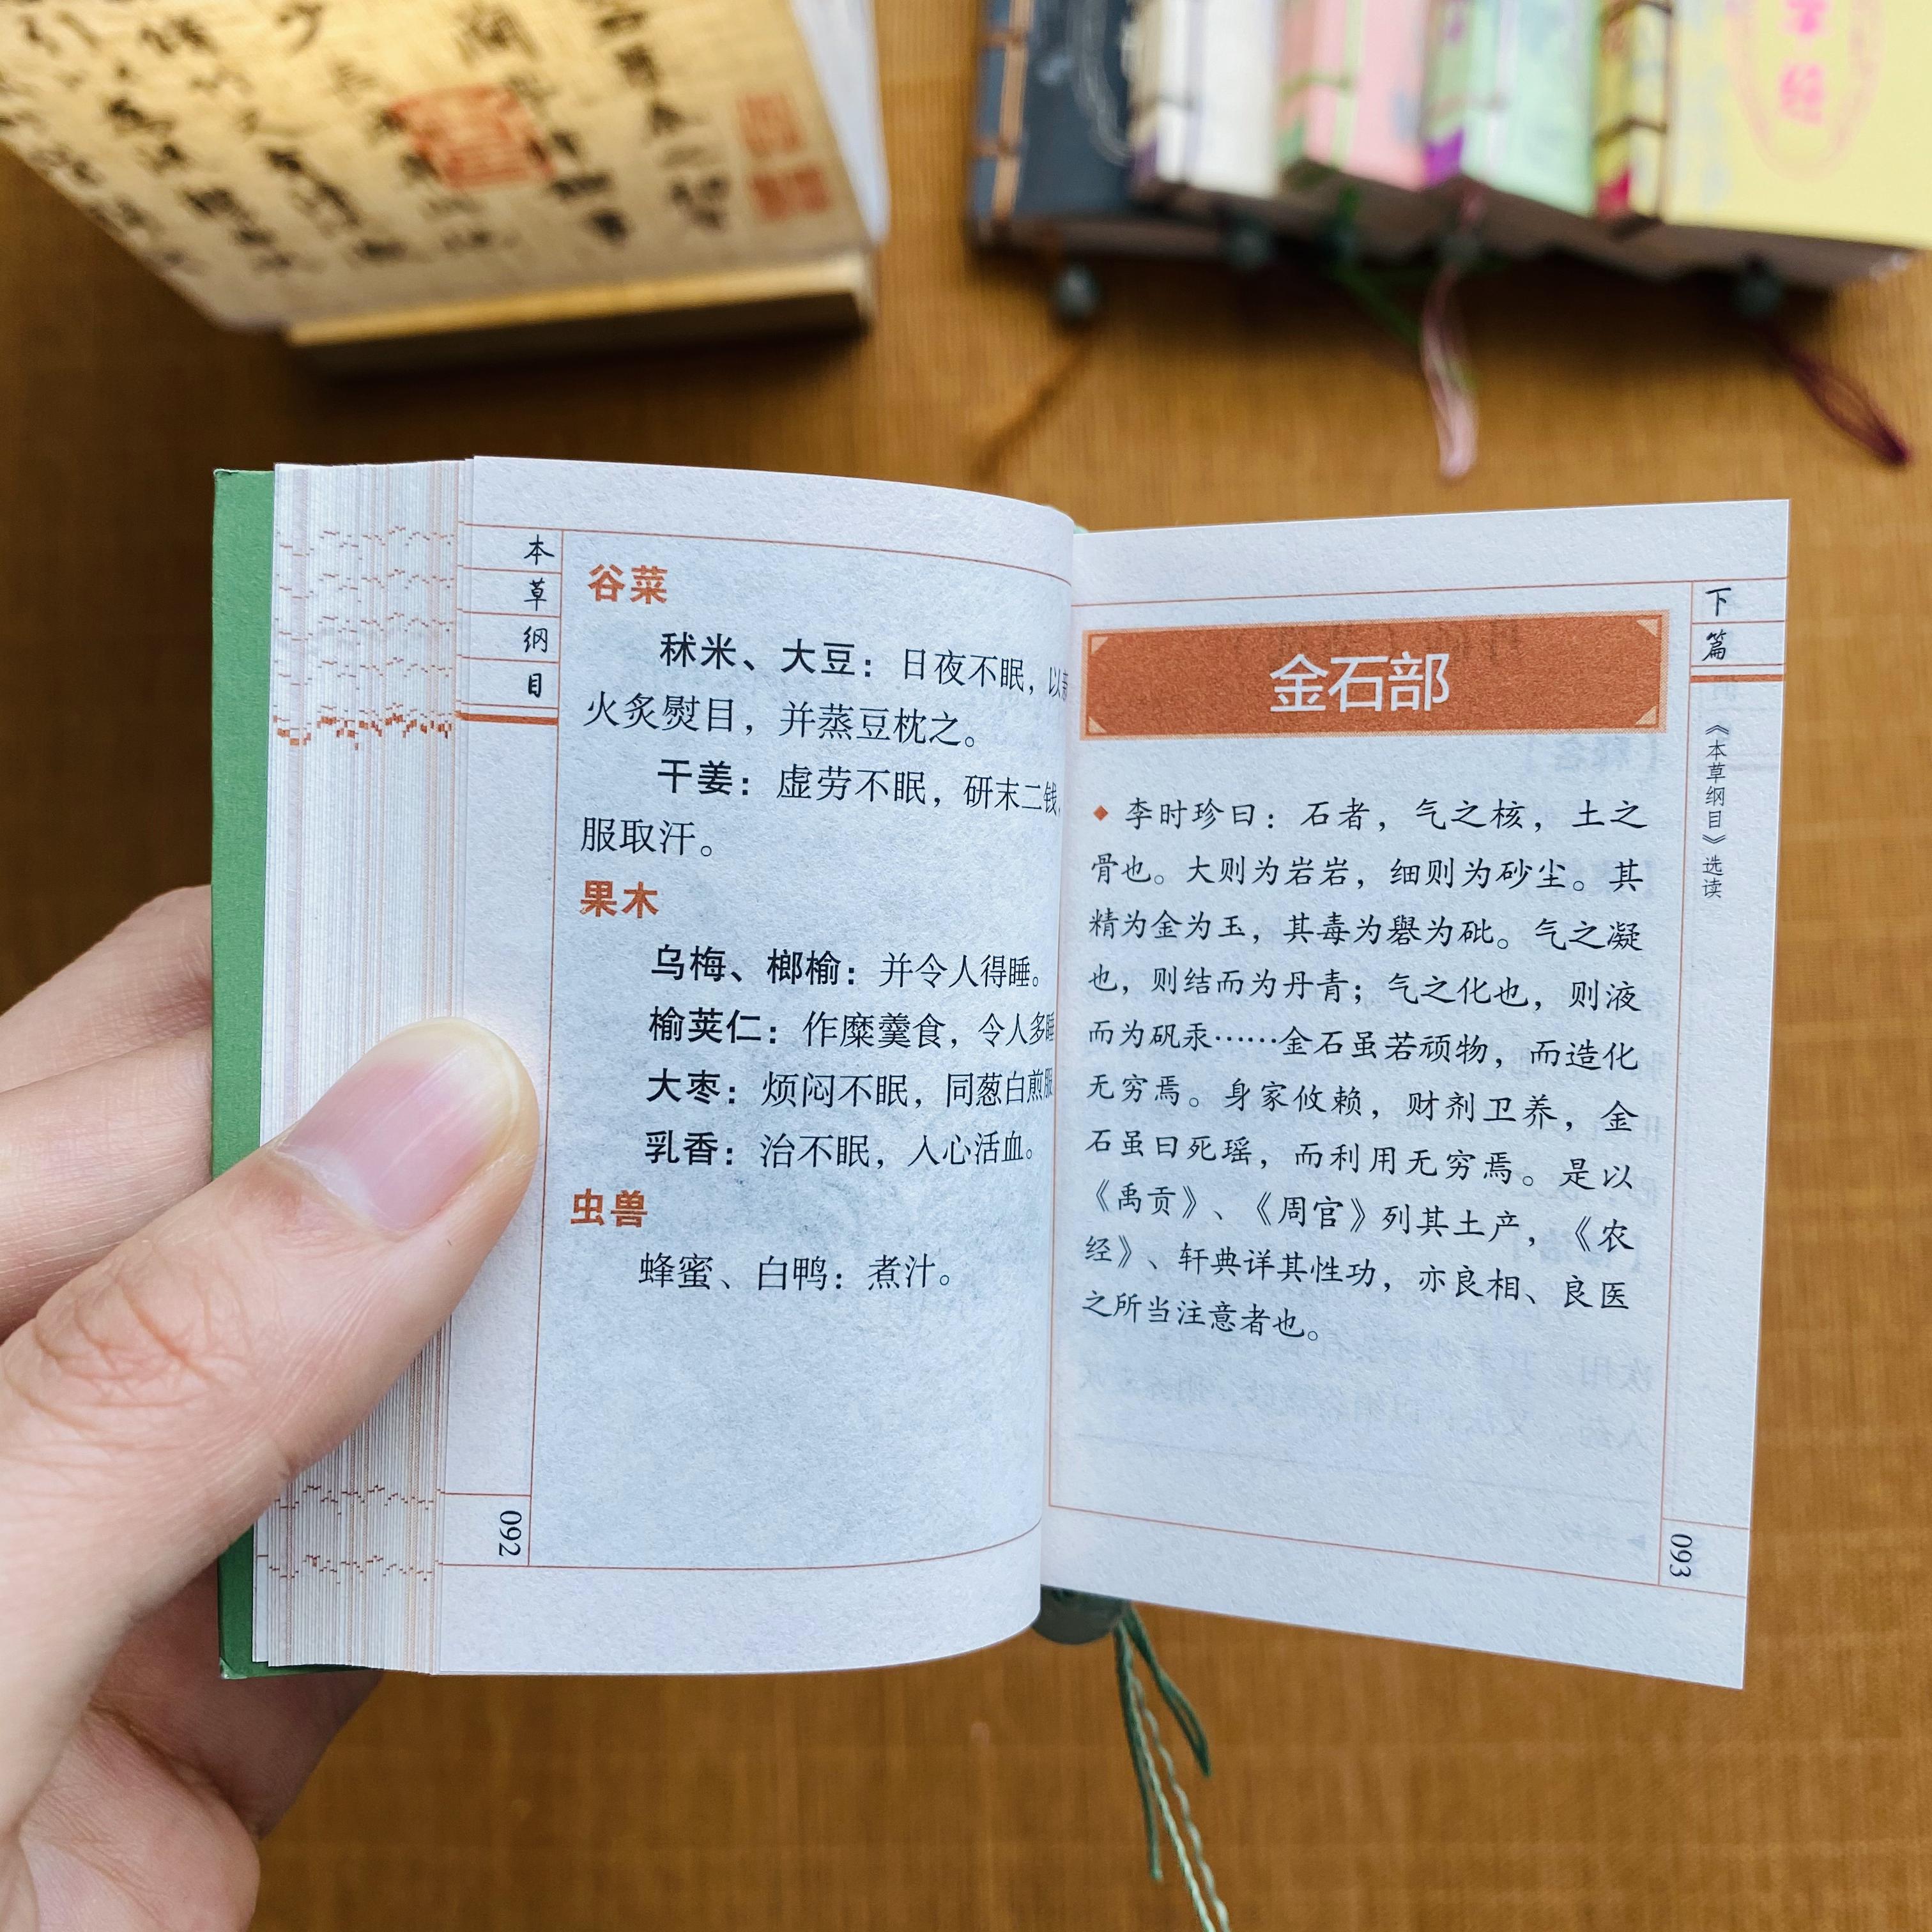 本草纲目
谷菜
秫米、大豆：日夜不眠，以新
火炙熨目，并蒸豆枕之。
干姜：虚劳不眠，研末二钱，
服取汗。
果木
乌梅、榔榆：并令人得睡。
榆荚仁：作糜羹食，令人多睡
大枣：烦闷不眠，同葱白煎服
乳香：治不眠，入心活血。
虫兽
蜂蜜、白鸭：煮汁。
092
下篇
《本草纲目》选读
金石部
李时珍曰：石者，气之核，土之
骨也。大则为岩岩，细则为砂尘。其
精为金为玉，其毒为礜为砒。气之凝
也，则结而为丹青；气之化也，则液
而为矾汞……金石虽若顽物，而造化
无穷焉。身家攸赖，财剂卫养，金
石虽曰死瑶，而利用无穷焉。是以
《禹贡》、《周官》列其土产，《农
经》、轩典详其性功，亦良相、良医
之所当注意者也。
093